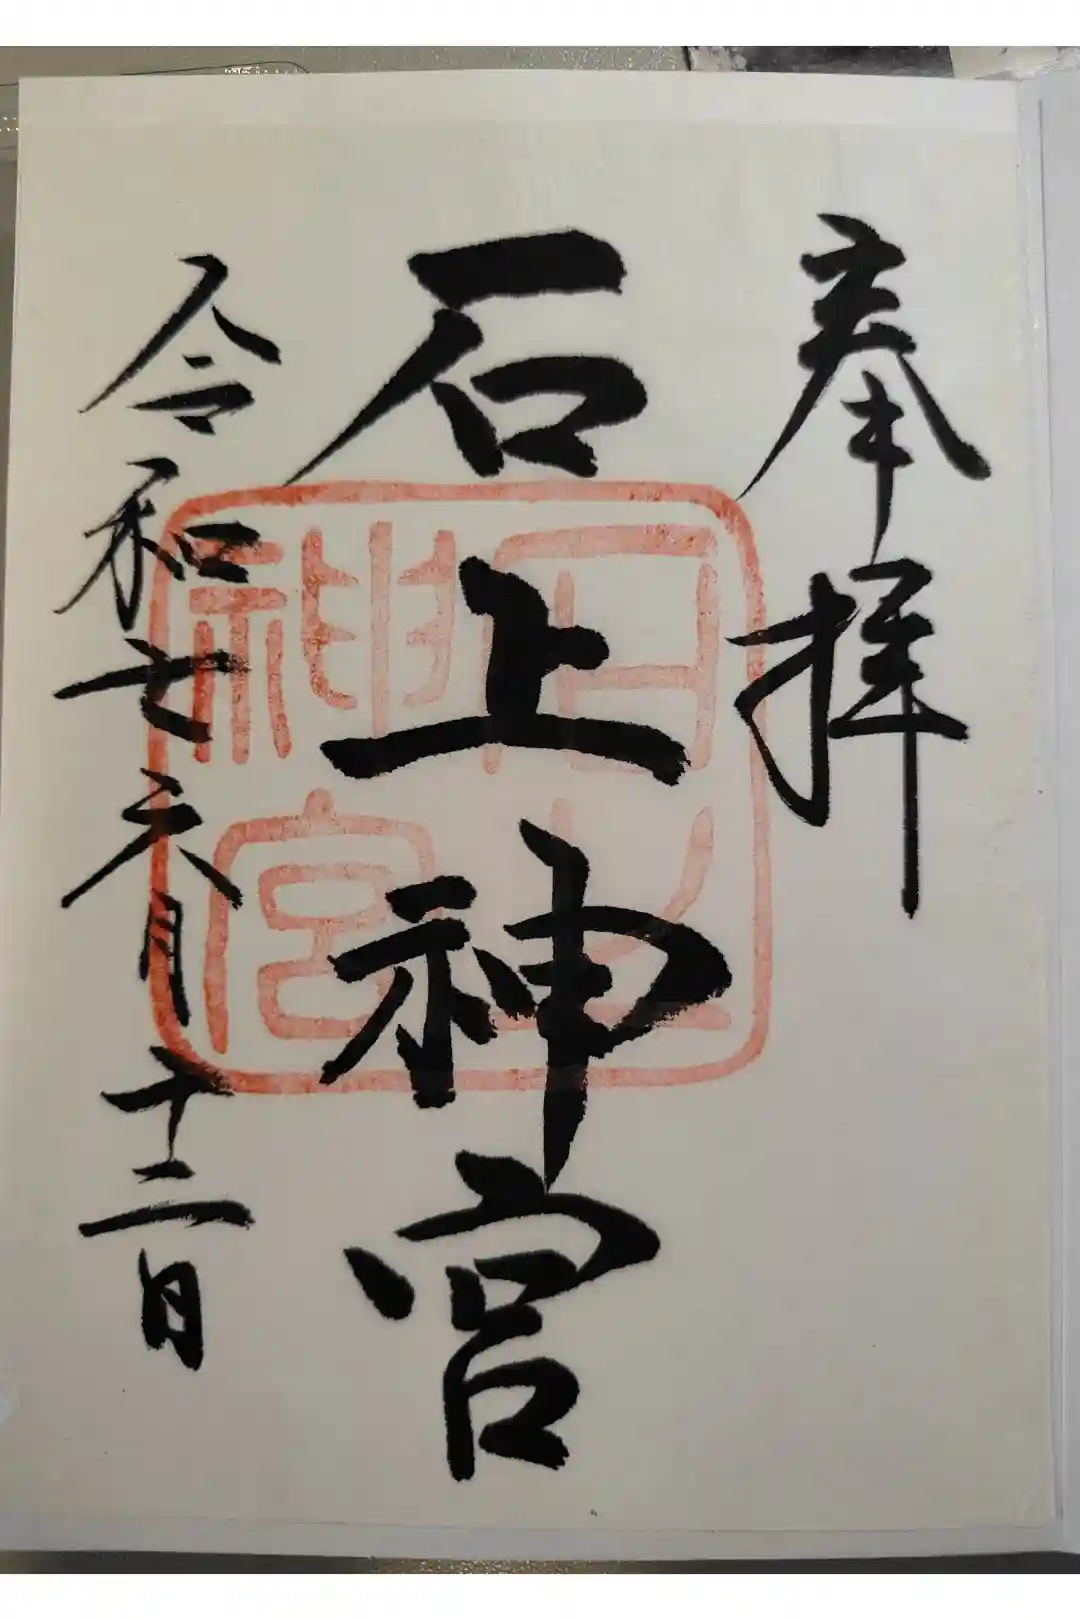 奉拝
石上神宮
石上神宮
令和七六月十二日